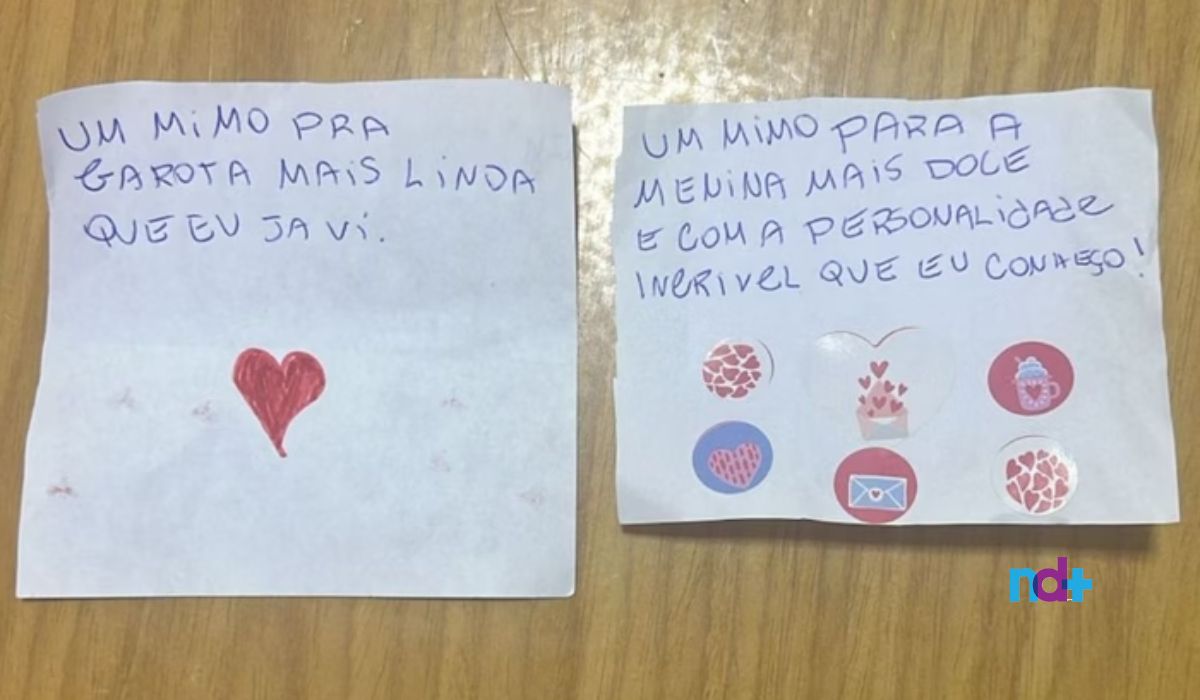 UM MiMO PRA
GAROTA MAiS LiNDA
QUE EU JA Vi.
UM MiMO PARA A
MENiNA MAiS DOCE
E COM A PERSONALidAde
INCRIVEL QUE EU CONHEÇO!
nd+